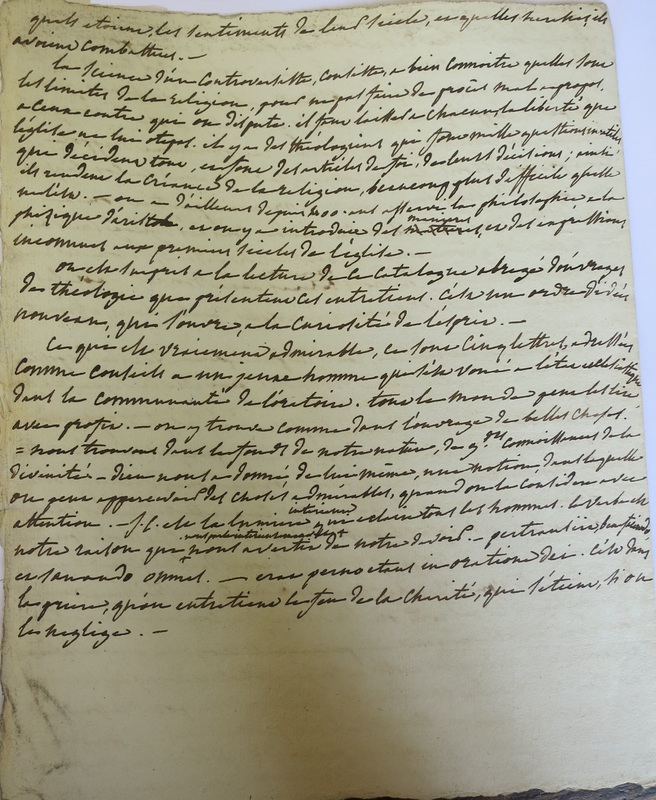 quels etoient, les sentiments de leur siecle, et quelles heresies, ils
avoient combattues. —
la science d'un controversiste, consiste, a bien connoitre quelles sont
les limites de la religion, pour ne pas faire de procès mal a propos,
a ceux contre qui on dispute. il faut laisser a chacun, la liberté que
l'église ne lui ote pas. il y a des théologiens qui font mille questions inutiles
qui décident tout, et font des articles de foi, de leurs décisions; ainsi
ils rendent la créance de la religion, beaucoup plus difficile quelle
n'est. — on a d'ailleurs depuis 400. ans asservi la philosophie a la
phisique d'aristote, et on y a introduit des manieres, et des expressions
inconnues aux premiers siecles de l'église. —
on est surpris a la lecture de ce catalogue abregé d'ouvrages
de théologie que présentent ces entretiens. c'est un ordre d'idées
nouveau, qui s'ouvre, a la curiosité de l'esprit. —
ce qui est vraiement admirable, ce sont cinq lettres, adressées
comme conseils a un jeune homme qui s'est voué a l'état ecclesiastique
dans la communauté de l'oratoire. tout le monde peut les lire
avec profit. — on y trouve comme dans l'ouvrage de belles choses.
= nous trouvons dans le fond de notre nature, de gdes connoissances de la
divinité — dieu nous a donné, de lui même, une notion, dans laquelle
on peut appercevoir des choses admirables, quand on la considere avec
attention. — J. C. est la lumiere interieure qui eclaire tous les hommes. le verbe est
notre raison qui nous avertit de notre devoir. — pertransiit, benefaciendo
et sanando omnes. — erat pernoctans in oratione dei. c'est dans
la priere, qu'on entretient le feu de la charité, qui s'eteint, si on
les neglige. —